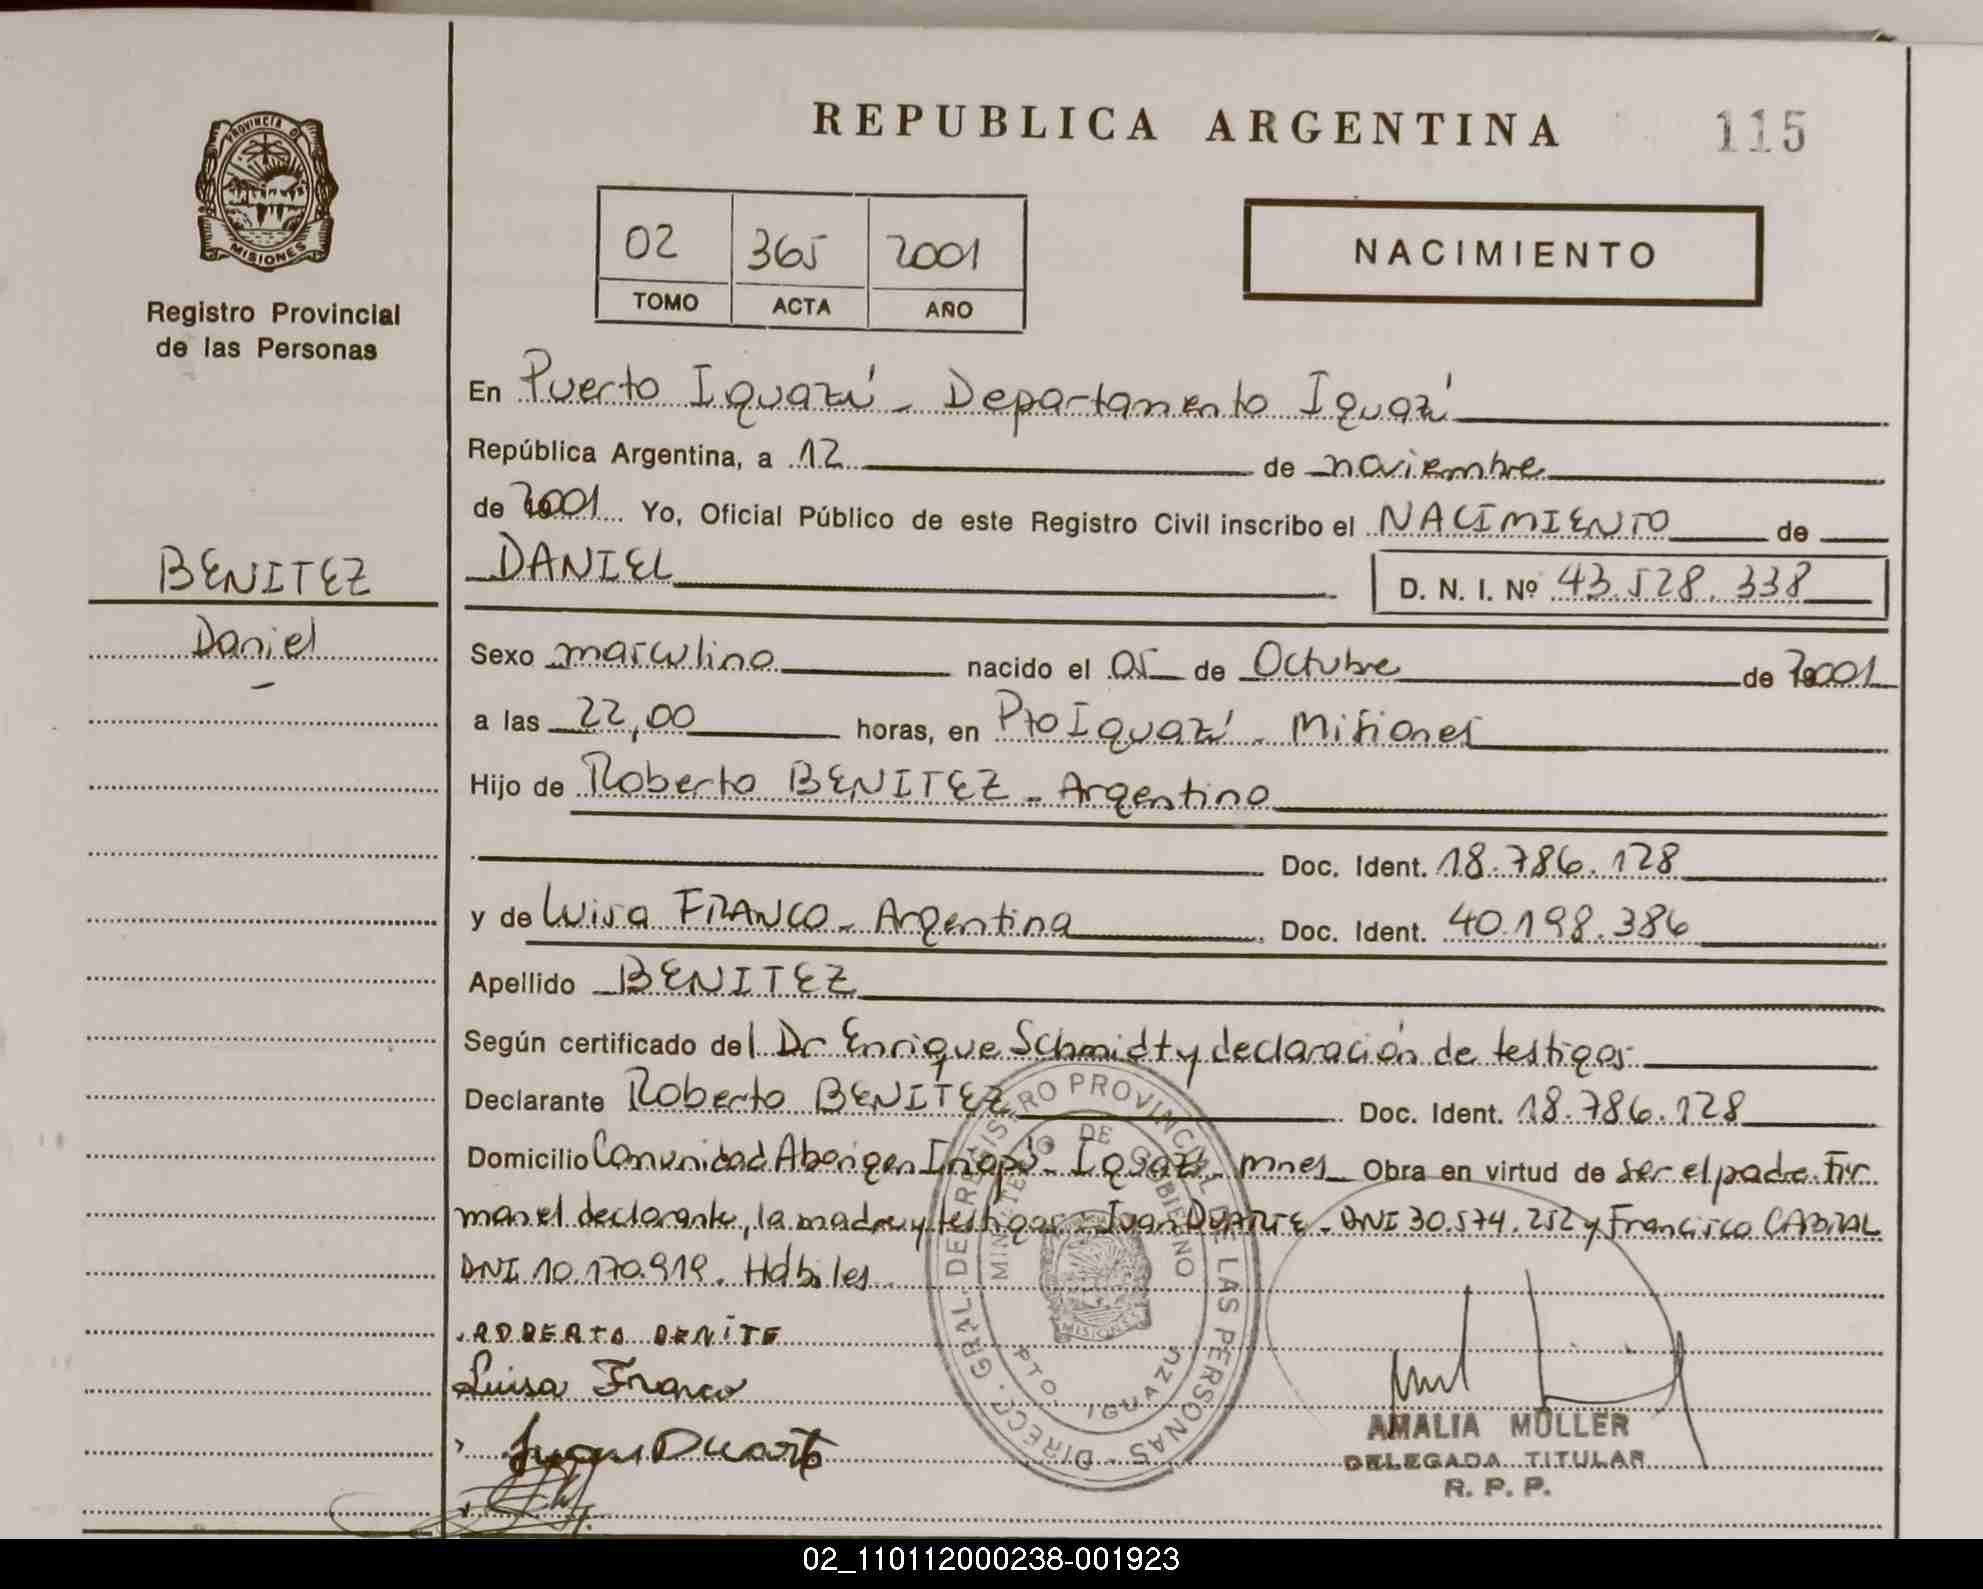 REPUBLICA ARGENTINA
115
PROVINCIA DE
MISIONES
Registro Provincial
de las Personas
02 365 2001
TOMO ACTA AÑO
NACIMIENTO
En Puerto Iguazú - Departamento Iguazú
República Argentina, a 12 de noviembre
de 2001 Yo, Oficial Público de este Registro Civil inscribo el NACIMIENTO de
BENITEZ
Daniel
DANIEL D. N. I. Nº 43.528.338
Sexo masculino nacido el 05 de Octubre de 2001
a las 22,00 horas, en Pto Iguazú - Misiones
Hijo de Roberto BENITEZ - Argentino
Doc. Ident. 18.786.128
y de Luisa FRANCO - Argentina Doc. Ident. 40.198.386
Apellido BENITEZ
Según certificado del Dr Enrique Schmidt y declaración de testigos
Declarante Roberto BENITEZ Doc. Ident. 18.786.128
Domicilio Comunidad Aborigen - Iguazú - Mnes Obra en virtud de ser el padre. Fir
man el declarante, la madre y testigos: Juan DUARTE - DNI 30.574.252 y Francisco CABRAL
DNI 10.170.919. Hábiles
ROBERTO BENITE
Luisa Franco
Juan Duarte
DIRECC. GRAL. DEL REGISTRO PROVINCIAL DE LAS PERSONAS
MINISTERIO DE GOBIERNO
MISIONES
PTO. IGUAZU
AMALIA MÜLLER
DELEGADA TITULAR
R. P. P.
02_110112000238-001923